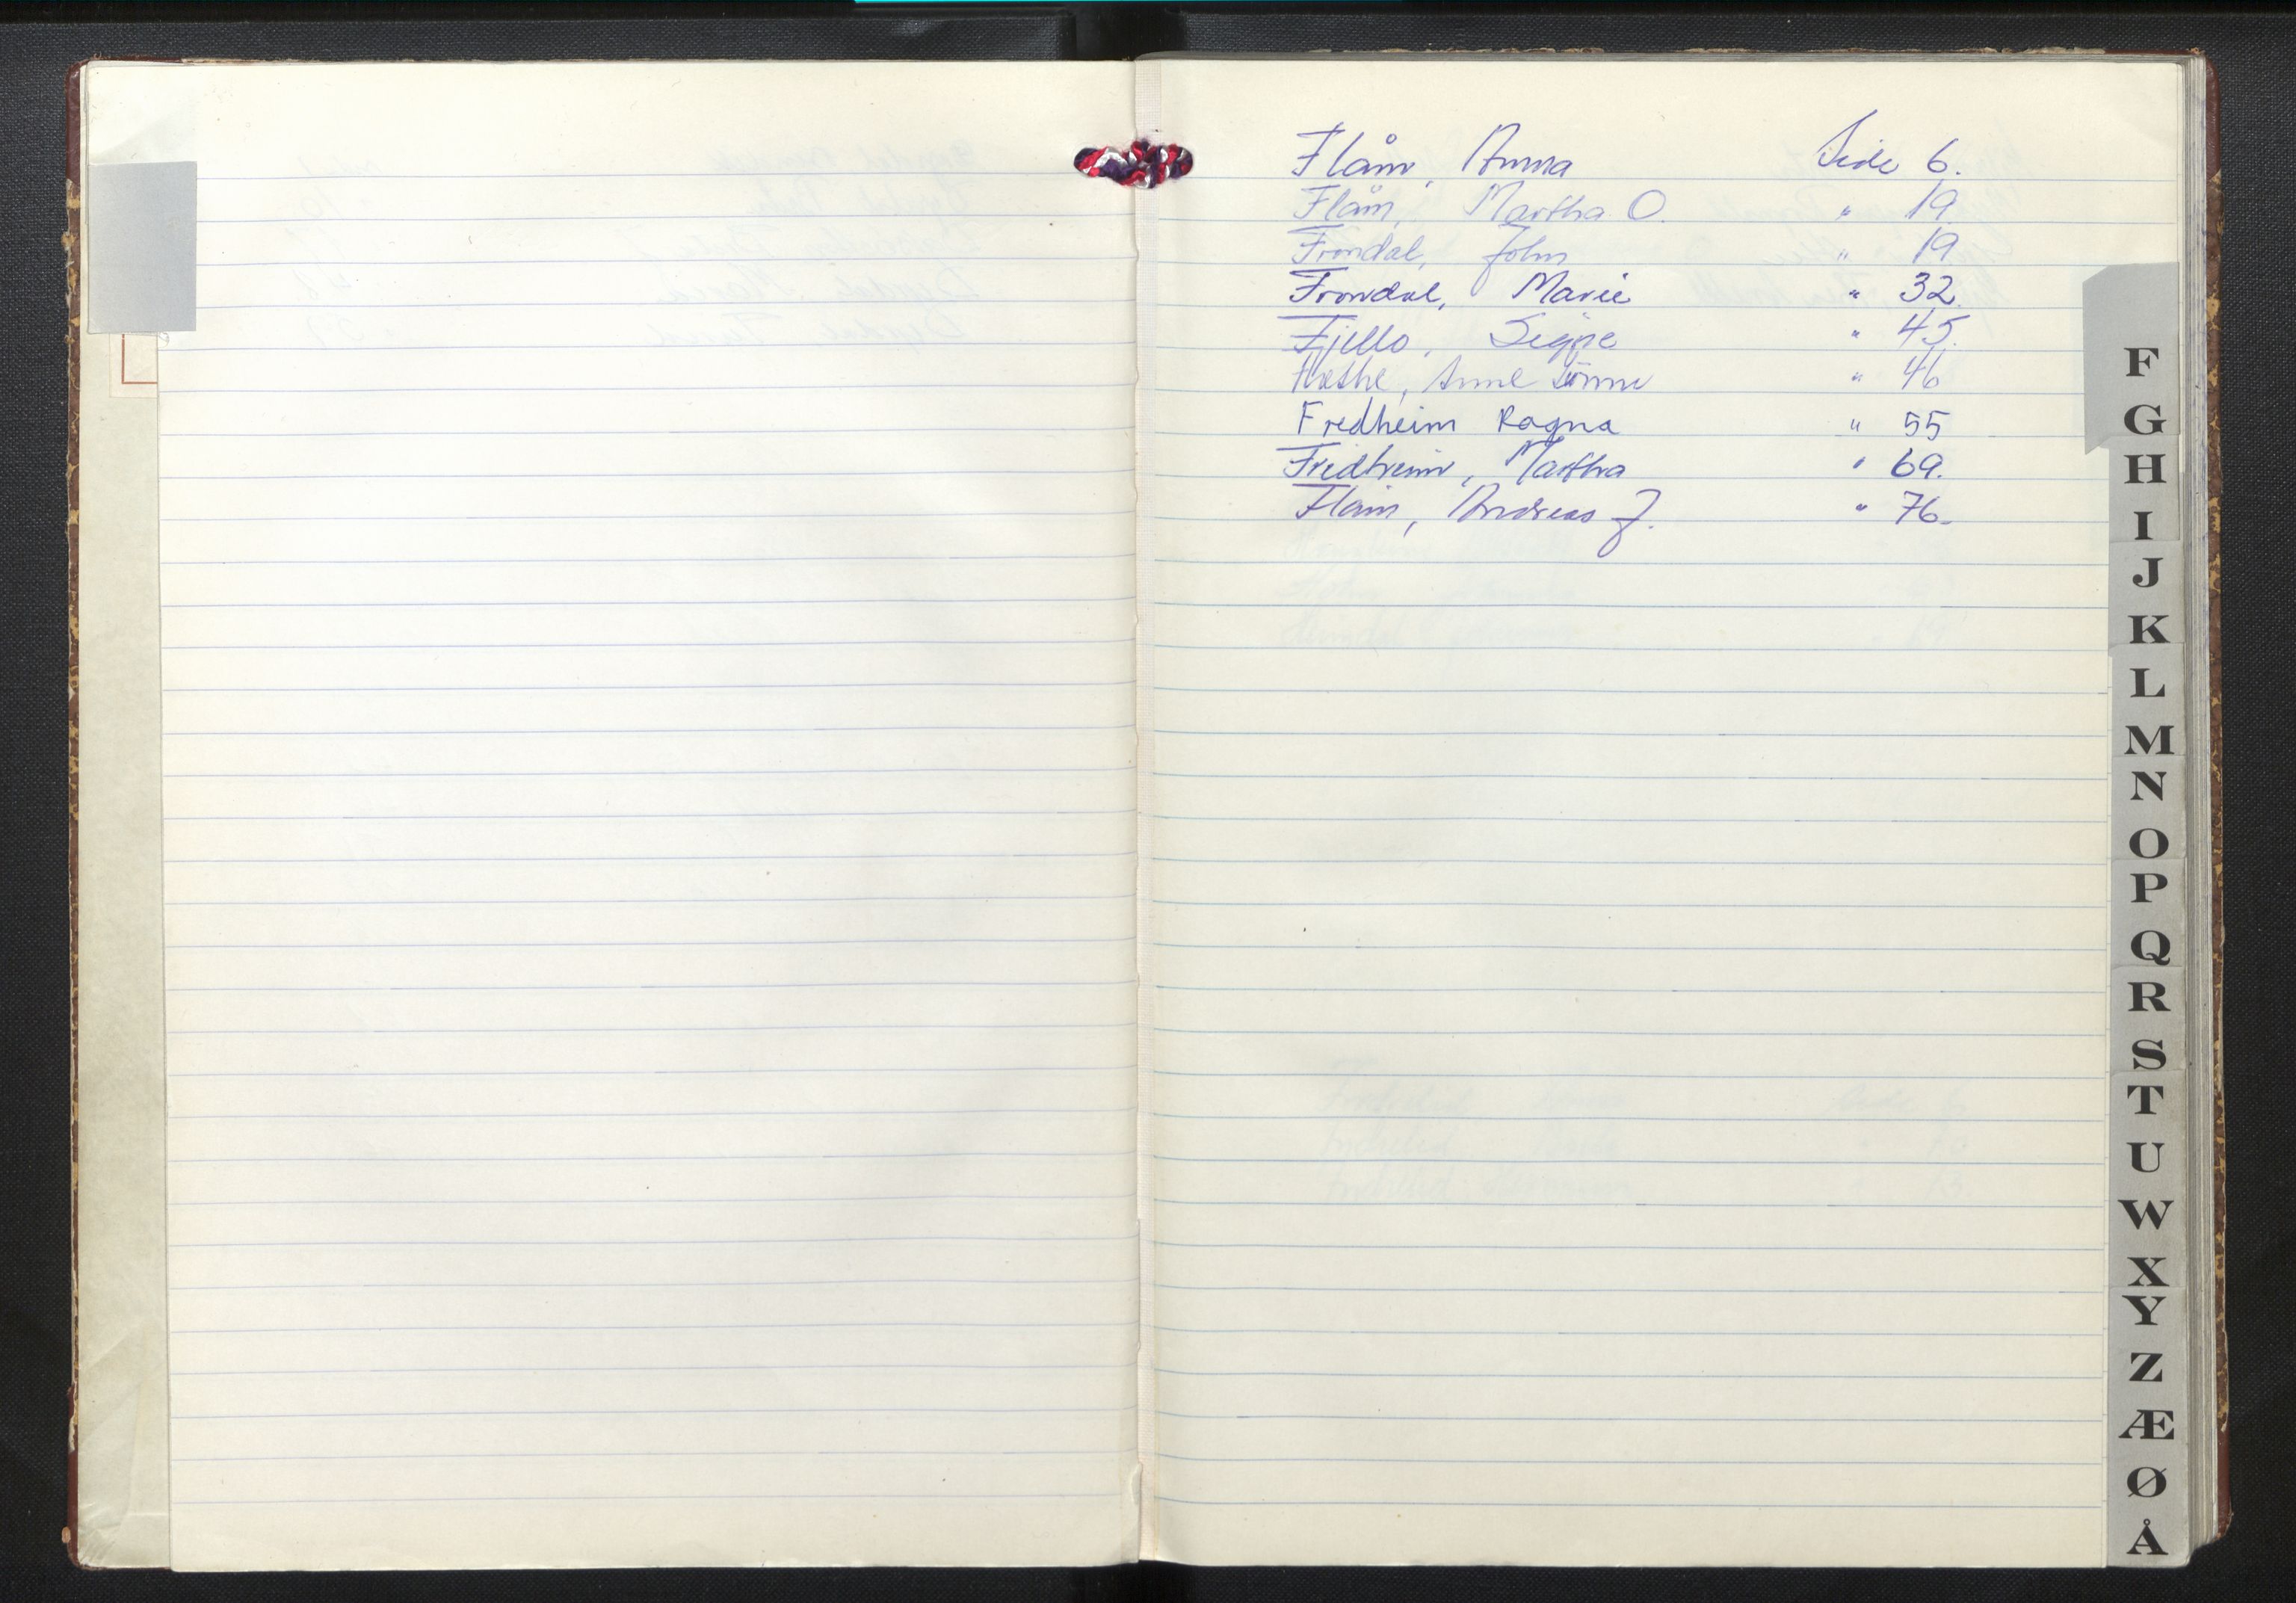 Flåm, Anna Side 6.
Flåm, Martha O. " 19
Frondal, John " 19
Frondal, Marie " 32.
Fjello, Signe " 45.
Anne " 46
Fredheim Ragna " 55
Fredheim, Martha " 69.
Flåm, Andreas J. " 76.
F
G
H
I
J
K
L
M
N
O
P
Q
R
S
T
U
W
X
Y
Z
Æ
Ø
Å